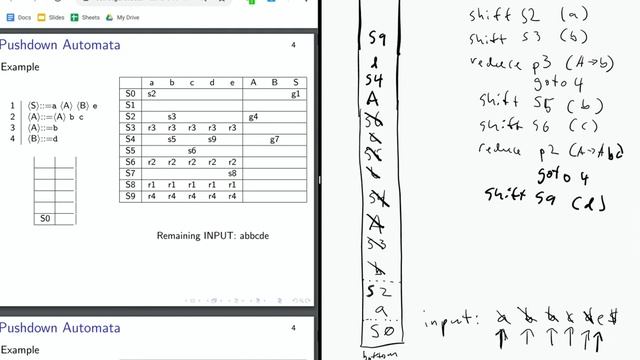 Docs Slides Sheets My Drive
Pushdown Automata 4
Example
a b c d e A B S
S0 s2 g1
S1
S2 s3 g4
S3 r3 r3 r3 r3 r3
S4 s5 s9 g7
S5 s6
S6 r2 r2 r2 r2 r2
S7 s8
S8 r1 r1 r1 r1 r1
S9 r4 r4 r4 r4 r4
1 ⟨S⟩::=a ⟨A⟩ ⟨B⟩ e
2 ⟨A⟩::=⟨A⟩ b c
3 ⟨A⟩::=b
4 ⟨B⟩::=d
S0
Remaining INPUT: abbcde
Pushdown Automata 4
Example
S9
d
S4
A
S6
c
S5
b
S4
A
S3
b
S2
a
S0
bottom
shift S2 (a)
shift S3 (b)
reduce p3 (A→b)
goto 4
shift S5 (b)
shift S6 (c)
reduce p2 (A→Abc)
goto 4
shift S9 (d)
input: a b b c d e $